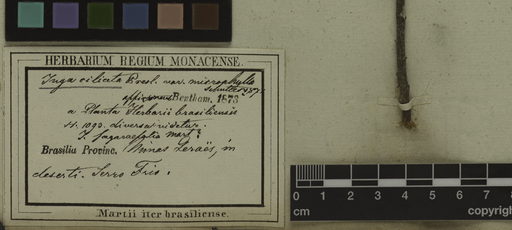 HERBARIUM REGIUM MONACENSE.
Inga ciliata Presl. var. microphylla
Bentham, 1873
a Planta Herbarii brasiliensis
N. 1093. diversa videtur.
I. fagaraefolia mart?
Brasilia Provinc. Minas Geraës, in
deserti. Serro Frio.
Martii iter brasiliense.
0 1 2 3 4 5 6 7 8
cm copyrigh